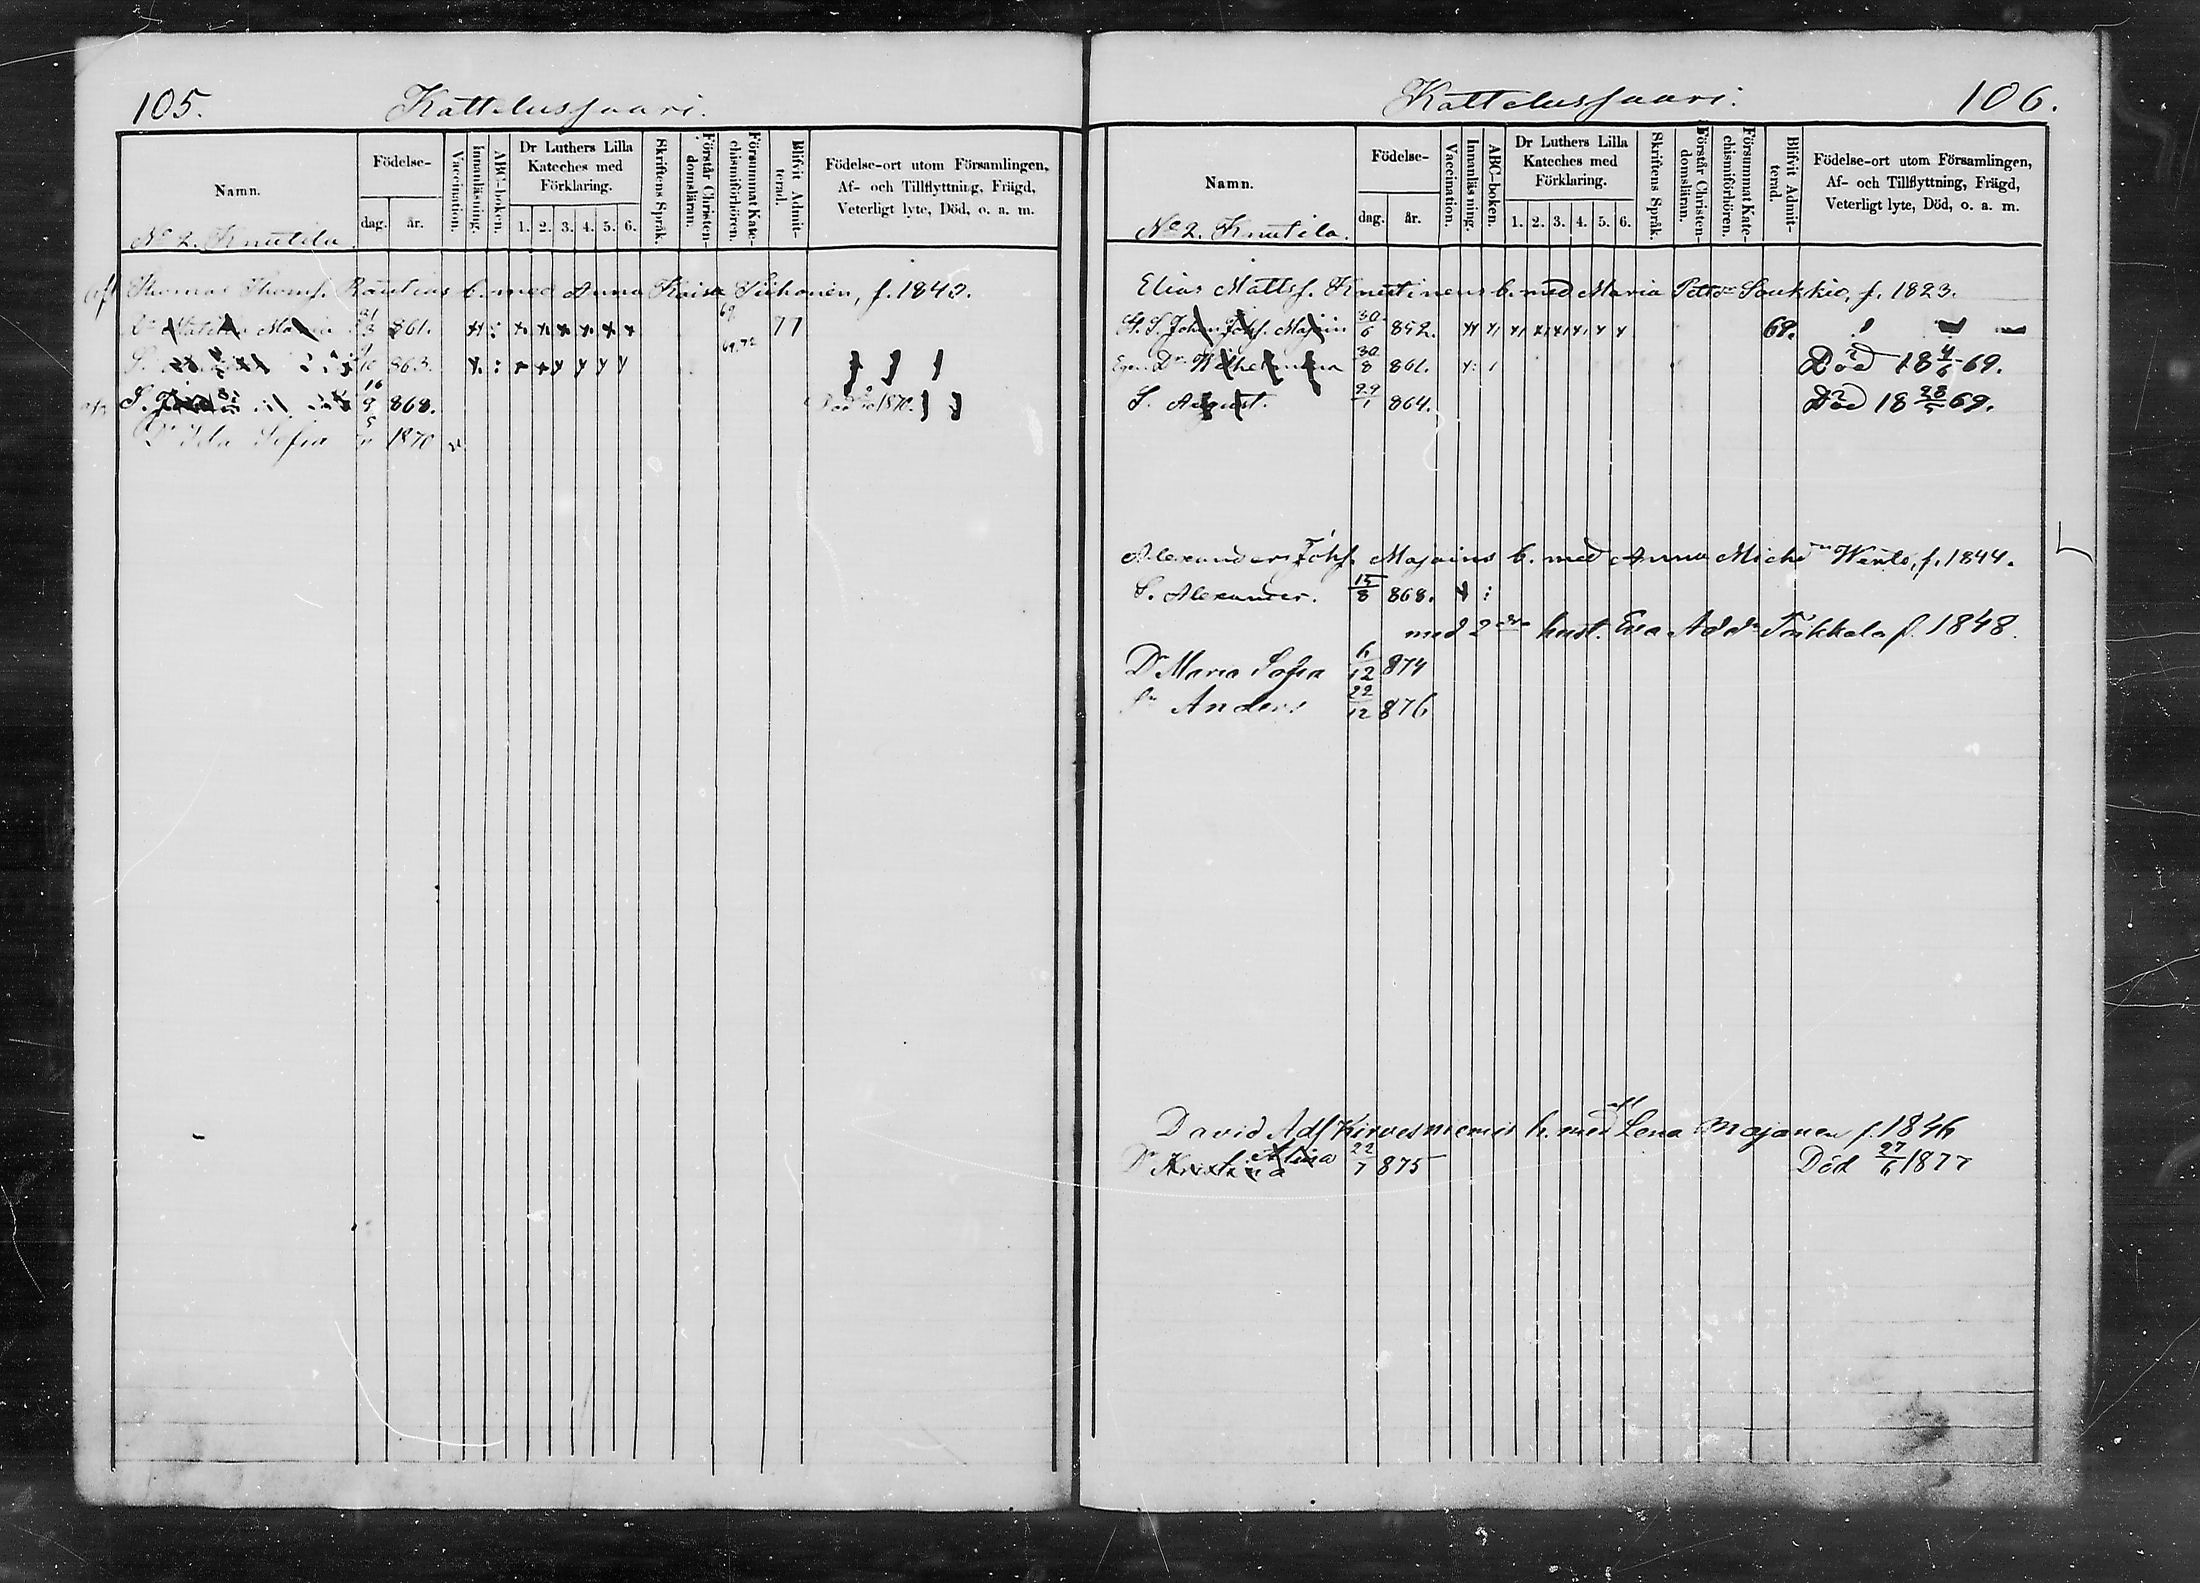 105.
Kattelussaari.
Namn.
Födelse-
dag.
år.
Vaccination.
Innanläsning.
ABC-boken.
Dr Luthers Lilla
Kateches med
Förklaring.
1. 2. 3. 4. 5. 6.
Skriftens Språk.
Förstår Christen-
domsläran.
Försummat Kate-
chismiförhören.
Blifvit Admit-
terad.
Födelse-ort utom Församlingen,
Af- och Tillflyttning, Frägd,
Veterligt lyte, Död, o. a. m.
No 2. Knutila.
Thomas Thomss. Rautias b. med Anna Kaisa, f. 1843.
Maria 861. 69 77
S. 10 863. 69.72
S. 16/9 868. Död 1870.
Dr Ida Sofia 5/11 1870
Kattelussaari.
106.
Namn.
Födelse-
dag.
år.
Vaccination.
Innanläsning.
ABC-boken.
Dr Luthers Lilla
Kateches med
Förklaring.
1. 2. 3. 4. 5. 6.
Skriftens Språk.
Förstår Christen-
domsläran.
Försummat Kate-
chismiförhören.
Blifvit Admit-
terad.
Födelse-ort utom Församlingen,
Af- och Tillflyttning, Frägd,
Veterligt lyte, Död, o. a. m.
No 2. Knutila.
Elias Mattss. Knutinens b. med Maria Pettdr Soukkio, f. 1823.
S. Johan Johss. Majain 30/6 852. 69.
Egen Dr Wilhelmina 30/8 861. Död 18 4/6 69.
S. August. 29/1 864. Död 18 28/5 69.
Alexander Johss. Majains b. med Anna Michdr Wento, f. 1844.
S. Alexander. 15/8 868.
med 2dra hust. Eva Addr Tikkala f. 1848.
Dr Maria Sofia 6/12 874
Sn Anders 22/12 876
David Adss Kirvesniemis h. med Lena Majanen f. 1846
Dr Kristina Alina 22/7 875 Död 27/6 1877